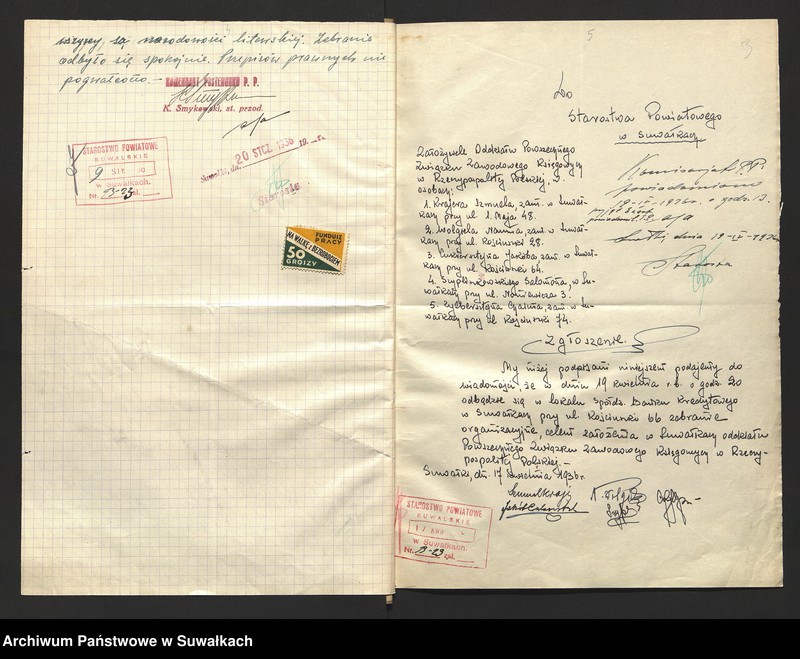 wszyscy, są narodowości litewskiej. Zebranie
odbyło się spokojnie. Przepisów prawnych nie
pogwałcono.-
KOMENDANT POSTERUNKU P. P.
K. Smykowski, st. przod.
a/a
STAROSTWO POWIATOWE
SUWALSKIE
9
w Suwałkach.
Nr. zał.
Suwałki, dn. 20 STCZ. 1936 19 r.
Starosta
FUNDUSZ
PRACY
NA WALKĘ Z BEZROBOCIEM
50
GROSZY
5
3
Do
Starostwa Powiatowego
w Suwałkach
Założyciele Oddziału Powszechnego
Związku Zawodowego Księgowych
w Rzeczypospolitej Polskiej, w
osobach:
1. Krajera Szmuela, zam. w Suwał-
kach przy ul. 1. Maja 48.
2. Nauma, zam. w Suwał-
kach przy ul. Kościuszki 28.
3. Jakóba zam. w Suwał-
kach przy ul. Kościuszki 64.
4. Salomona, w Su-
wałkach przy ul. Noniewicza 3.
5. zam. w Su-
wałkach przy ul. Kościuszki 74.
P.P.
powiadomiono
19-IV-1936r. o godz. 13.
a/a
Suwałki, dnia 19-IV-193
Starosta
Zgłoszenie.
My niżej podpisani niniejszem podajemy do
wiadomości, że w dniu 19 kwietnia r.b. o godz. 20
odbędzie się w lokalu Spółdz. Banku Kredytowego
w Suwałkach przy ul. Kościuszki 66 zebranie
organizacyjne, celem założenia w Suwałkach oddziału
Powszechnego Związku Zawodowego Księgowych w Rzeczy-
pospolitej Polskiej.-
Suwałki, dn. 17 kwietnia 1936r.
STAROSTWO POWIATOWE
SUWALSKIE
17
w Suwałkach.
Nr. zał.
Archiwum Państwowe w Suwałkach